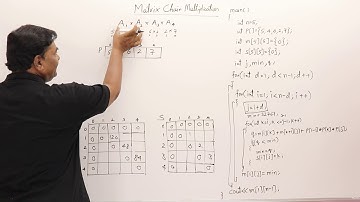 Matrix Chain Multiplication
A₁ × A₂ × A₃ × A₄
P 5 6 2 7
0 1 2 3 4
0 0 0
1 0 0 120
2 0 0 48
3 0 0 84
4 0 0
S 0 1 2 3 4
0
1
2
3
4
main()
{
int n=5;
int P[]={5,4,6,2,7};
int m[5][5]={0};
int s[5][5]={0};
int j,min,q;
for(int d=1; d<n-1; d++)
{
for(int i=1; i<n-d; i++)
{
j=i+d;
min=32767;
for(int k=i; k<=j-1; k++)
{
q=m[i][k]+m[k+1][j]+P[i-1]*P[k]*P[j];
if(q<min)
{
min=q;
s[i][j]=k;
}
}
m[i][j]=min;
}
}
cout<<m[1][n-1];
}